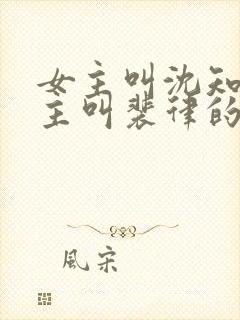 女主叫沈知
主叫裴律的
風宋